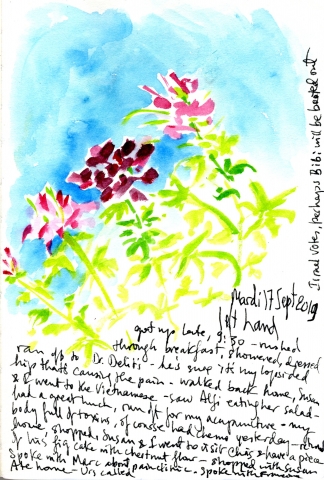 Israel Votes, perhaps Bibi will be booted out
mardi 17 Sept 2019
left hand
got up late, 9:30 - rushed
through breakfast, showered, dressed
ran off to Dr. - he's sure it's my lopsided
hips that's causing the pain - walked back home, Susan
& I went to the Vietnamese - saw Alfi eating her salad -
had a great lunch, ran off for my acupuncture - my
body full of toxins, of course had chemo yesterday -
home, shopped, Susan & I went to visit & have a piece
of his fig cake with chestnut flour - shopped with Susan
Spoke with Marc about pain clinic - spoke with
Ate home - called